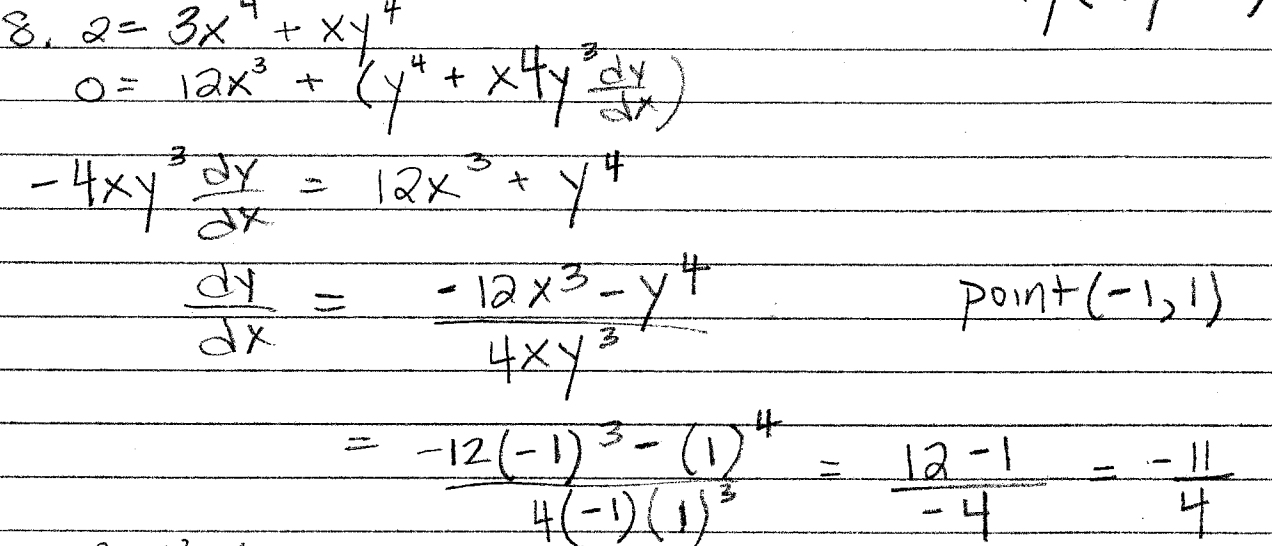 8. 2 = 3x^4 + xy^4
0 = 12x^3 + (y^4 + x4y^3 dy/dx)
-4xy^3 dy/dx = 12x^3 + y^4
dy/dx = (-12x^3 - y^4)/(4xy^3) point (-1, 1)
= (-12(-1)^3 - (1)^4)/(4(-1)(1)^3) = (12 - 1)/(-4) = -11/4